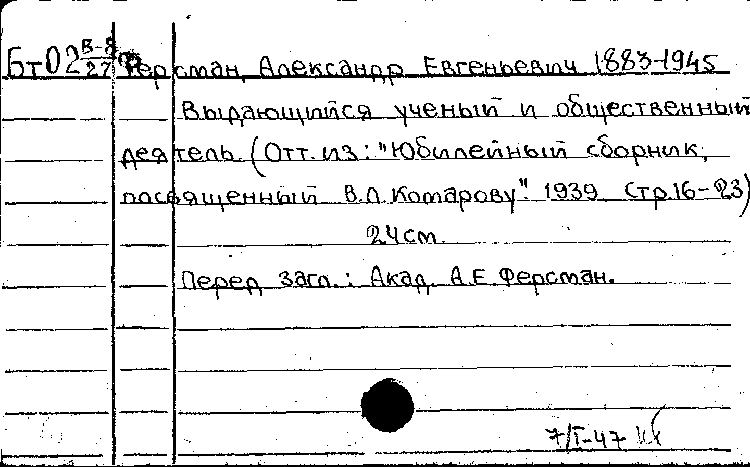 Бт02 В-8/27 Ферсман, Александр Евгеньевич 1883-1945
Выдающийся ученый и общественный
деятель. (Отт. из: "Юбилейный сборник,
посвященный В.Л. Комарову". 1939 Стр. 16-23)
24 см.
Перед загл.: Акад. А.Е. Ферсман.
7/I-47